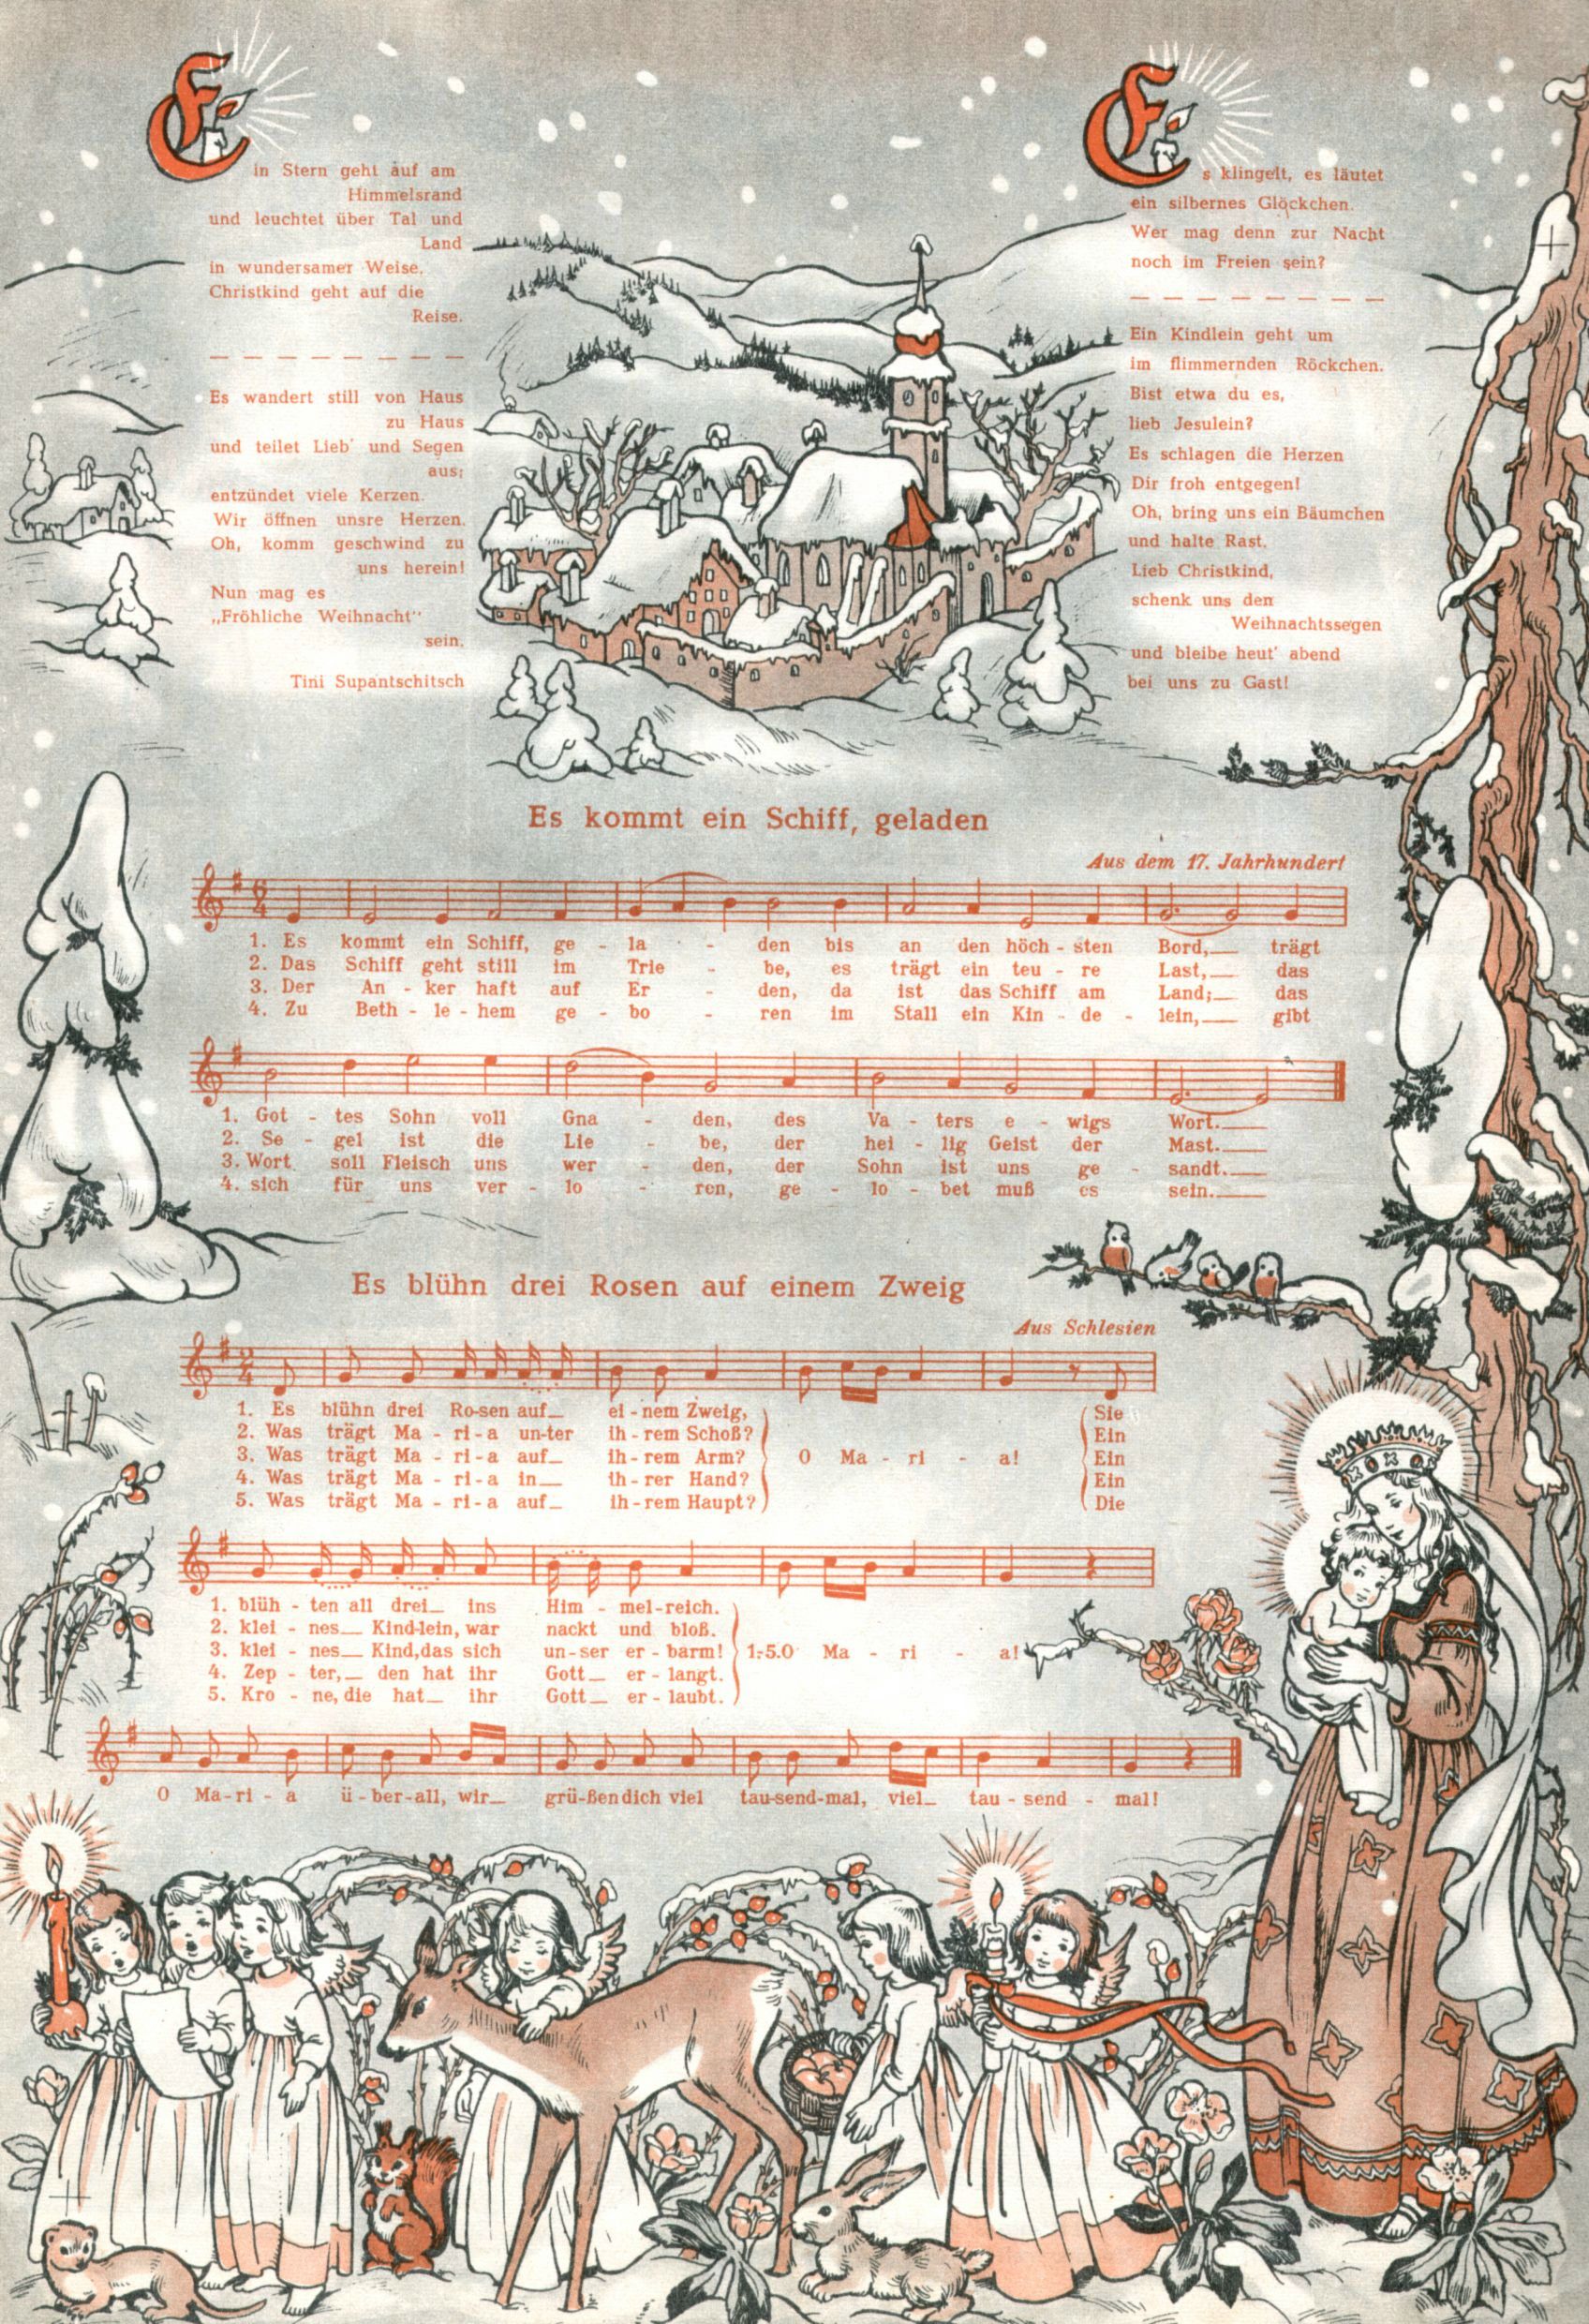 Ein Stern geht auf am
Himmelsrand
und leuchtet über Tal und
Land
in wundersamer Weise.
Christkind geht auf die
Reise.
Es wandert still von Haus
zu Haus
und teilet Lieb' und Segen
aus;
entzündet viele Kerzen.
Wir öffnen unsre Herzen.
Oh, komm geschwind zu
uns herein!
Nun mag es
„Fröhliche Weihnacht"
sein.
Tini Supantschitsch
Es klingelt, es läutet
ein silbernes Glöckchen.
Wer mag denn zur Nacht
noch im Freien sein?
Ein Kindlein geht um
im flimmernden Röckchen.
Bist etwa du es,
lieb Jesulein?
Es schlagen die Herzen
Dir froh entgegen!
Oh, bring uns ein Bäumchen
und halte Rast.
Lieb Christkind,
schenk uns den
Weihnachtssegen
und bleibe heut' abend
bei uns zu Gast!
Es kommt ein Schiff, geladen
Aus dem 17. Jahrhundert
6
4
1. Es kommt ein Schiff, ge - la - den bis an den höch - sten Bord, trägt
2. Das Schiff geht still im Trie - be, es trägt ein teu - re Last, das
3. Der An - ker haft auf Er - den, da ist das Schiff am Land; das
4. Zu Beth - le - hem ge - bo - ren im Stall ein Kin - de - lein, gibt
1. Got - tes Sohn voll Gna - den, des Va - ters e - wigs Wort.
2. Se - gel ist die Lie - be, der hei - lig Geist der Mast.
3. Wort soll Fleisch uns wer - den, der Sohn ist uns ge - sandt.
4. sich für uns ver - lo - ren, ge - lo - bet muß es sein.
Es blühn drei Rosen auf einem Zweig
Aus Schlesien
2
4
1. Es blühn drei Ro-sen auf ei - nem Zweig, Sie
2. Was trägt Ma - ri - a un-ter ih - rem Schoß? Ein
3. Was trägt Ma - ri - a auf ih - rem Arm? O Ma - ri - a! Ein
4. Was trägt Ma - ri - a in ih - rer Hand? Ein
5. Was trägt Ma - ri - a auf ih - rem Haupt? Die
1. blüh - ten all drei ins Him - mel-reich.
2. klei - nes Kind-lein, war nackt und bloß.
3. klei - nes Kind, das sich un - ser er - barm! 1.-5. O Ma - ri - a!
4. Zep - ter, den hat ihr Gott er - langt.
5. Kro - ne, die hat ihr Gott er - laubt.
O Ma - ri - a ü - ber-all, wir grü-ßen dich viel tau-send-mal, viel tau - send - mal!